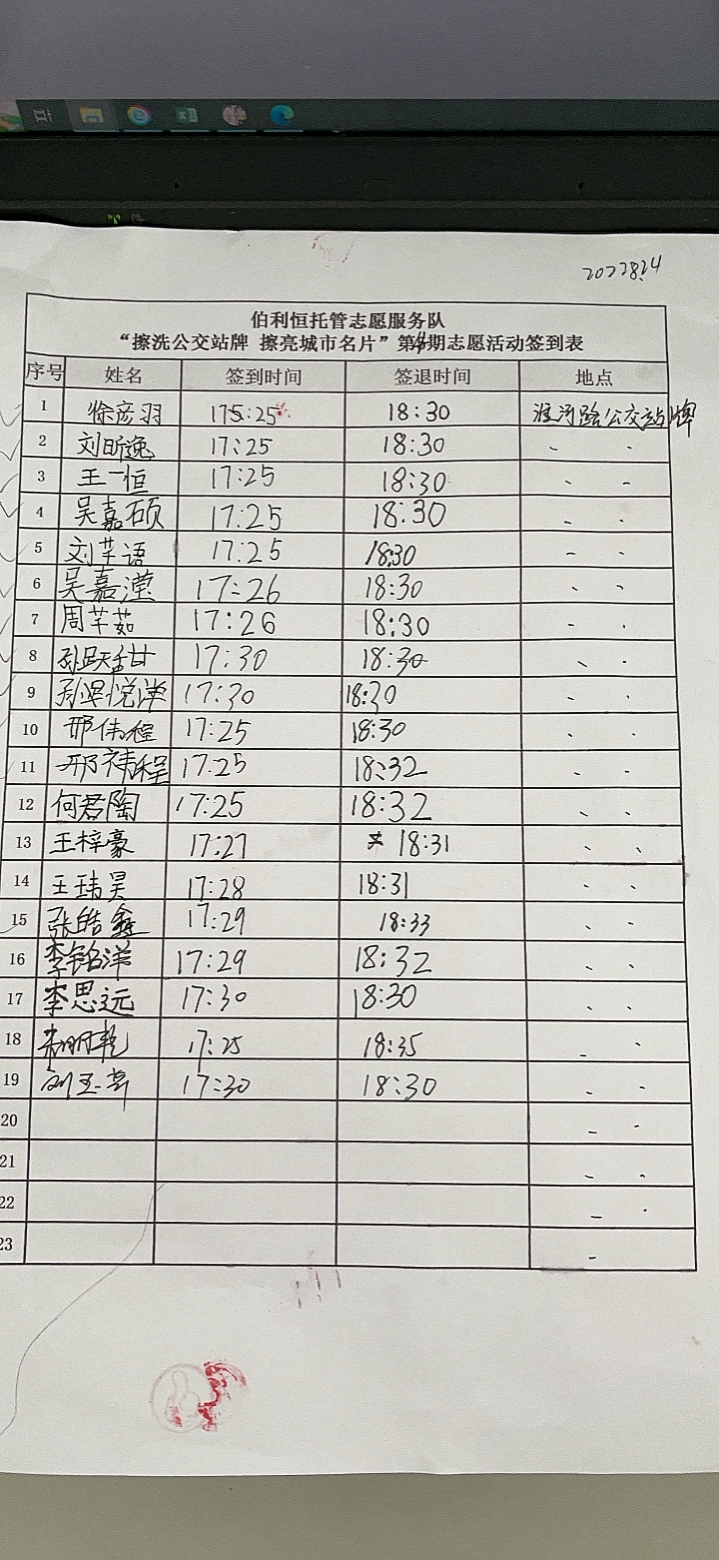 2022824
伯利恒托管志愿服务队
“擦洗公交站牌 擦亮城市名片”第4期志愿活动签到表
序号 姓名 签到时间 签退时间 地点
1 徐彦羽 17:25 18:30 淮河路公交站牌
2 刘昕逸 17:25 18:30
3 王一恒 17:25 18:30
4 吴嘉硕 17:25 18:30
5 刘芊语 17:25 18:30
6 吴嘉滢 17:26 18:30
7 周芊茹 17:26 18:30
8 17:30 18:30
9 17:30 18:30
10 邢伟程 17:25 18:30
11 邢祎程 17:25 18:32
12 何君陶 17:25 18:32
13 王梓豪 17:27 18:31
14 王玮昊 17:28 18:31
15 张皓鑫 17:29 18:33
16 李铭洋 17:29 18:32
17 李思远 17:30 18:30
18 17:25 18:35
19 17:30 18:30
20
21
22
23